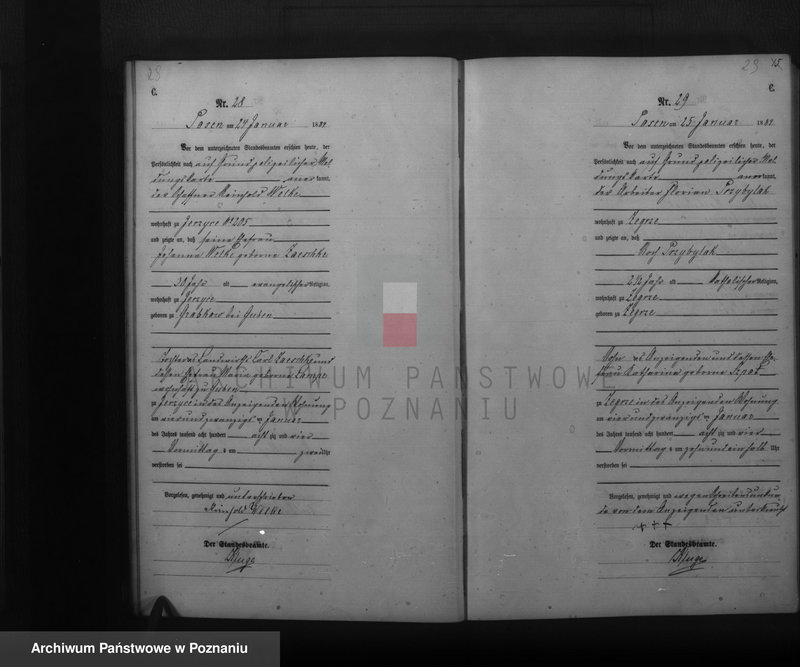 28
C.
Nr. 28
Posen am 24 Januar 1884
Vor dem unterzeichneten Standesbeamten erschien heute, der
Persönlichkeit nach auf Grund polizeilicher Mel
dungskarte anerkannt,
der Schaffner Reinhold Welke
wohnhaft zu Jerzyce No 205
und zeigte an, daß seine Ehefrau
Johanna Welke geborne Laeschke
30 Jahr alt evangelischer Religion,
wohnhaft zu Jerzyce
geboren zu Grabkow bei Guben
Tochter des Landwirth Carl Laeschke und
dessen Ehefrau Maria geborne Lampe
wohnhaft zu Guben
zu Jerzyce in des Anzeigenden Wohnung
am vierundzwanzigsten Januar
des Jahres tausend acht hundert achtzig und vier
Vormittag s um zwei Uhr
verstorben sei
Vorgelesen, genehmigt und unterschrieben
Reinhold Welke
Der Standesbeamte.
Kluge
29 15
C.
Nr. 29
Posen am 25 Januar 1884
Vor dem unterzeichneten Standesbeamten erschien heute, der
Persönlichkeit nach auf Grund polizeilicher Mel
dungskarte anerkannt,
der Arbeiter Florian Przybylak
wohnhaft zu Zegrze
und zeigte an, daß
Przybylak
2 1/2 Jahr alt katholischer Religion,
wohnhaft zu Zegrze
geboren zu Zegrze
des Anzeigenden und dessen Ehe
frau Catharina geborne
zu Zegrze in des Anzeigenden Wohnung
am vierundzwanzigsten Januar
des Jahres tausend acht hundert achtzig und vier
Vormittag s um zehn und ein halb Uhr
verstorben sei
Vorgelesen, genehmigt und wegen Schreibensunkun
de von dem Anzeigenden unterkreuzt
+++
Der Standesbeamte.
Kluge
ARCHIWUM PAŃSTWOWE
W POZNANIU
Archiwum Państwowe w Poznaniu